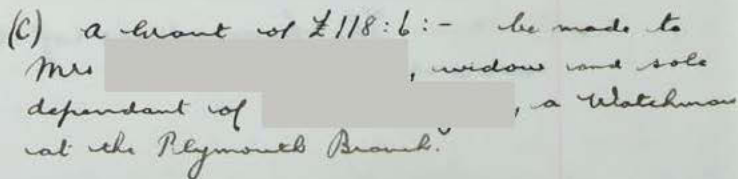 (C) a Grant of £118:6:- be made to
Mrs , widow and sole
dependant of , a Watchman
at the Plymouth Branch."